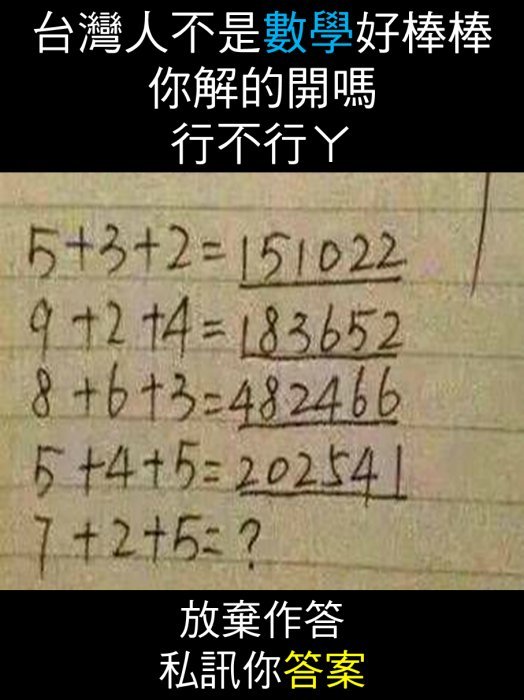 台灣人不是數學好棒棒
你解的開嗎
行不行ㄚ
5+3+2=151022
9+2+4=183652
8+6+3=482466
5+4+5=202541
7+2+5=?
放棄作答
私訊你答案